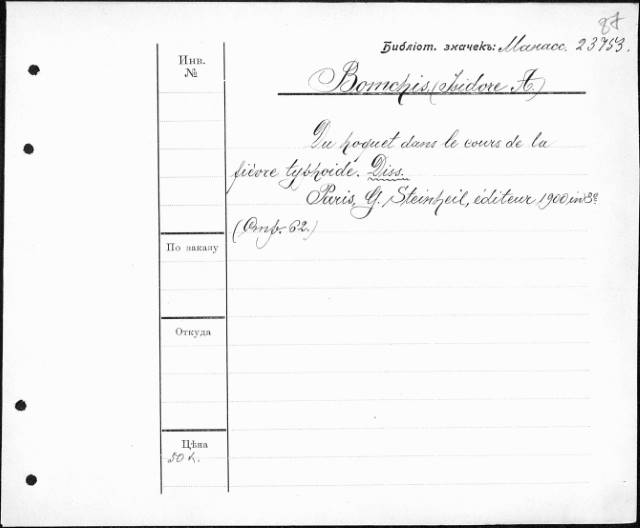 87
Библіот. значекъ: Манасс. 23753.
Инв.
№
Bomchis, (Isidore A.)
Du hoquet dans le cours de la
fièvre typhoide. Diss.
Paris, G. Steinheil, éditeur 1900, in 8º
(Стр. 62.)
По заказу
Откуда
Цѣна
50 к.